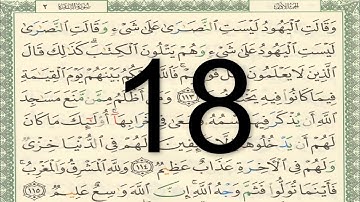 الجزء الأول
سورة البقرة ٢
وَقَالَتِ الْيَهُودُ لَيْسَتِ النَّصَارَىٰ عَلَىٰ شَيْءٍ وَقَالَتِ النَّصَارَىٰ
لَيْسَتِ الْيَهُودُ عَلَىٰ شَيْءٍ وَهُمْ يَتْلُونَ الْكِتَابَ كَذَٰلِكَ قَالَ
الَّذِينَ لَا يَعْلَمُونَ قَوْلِهِمْ فَاللَّهُ يَحْكُمُ بَيْنَهُمْ يَوْمَ الْقِيَامَةِ
فِيمَا كَانُوا فِيهِ ١١٣ وَمَنْ أَظْلَمُ مِمَّن مَّنَعَ مَسَاجِدَ
اللَّهِ أَن يُذْكَرَ فِيهَا اسْمُهُ وَسَعَىٰ فِي خَرَابِهَا أُولَٰئِكَ مَا كَانَ
لَهُمْ أَن يَدْخُلُوهَا لَهُمْ فِي الدُّنْيَا خِزْيٌ
وَلَهُمْ فِي الْآخِرَةِ عَذَابٌ عَظِيمٌ ١١٤ وَلِلَّهِ الْمَشْرِقُ وَالْمَغْرِبُ
فَأَيْنَمَا تُوَلُّوا فَثَمَّ وَجْهُ اللَّهِ إِنَّ اللَّهَ وَاسِعٌ عَلِيمٌ ١١٥
18